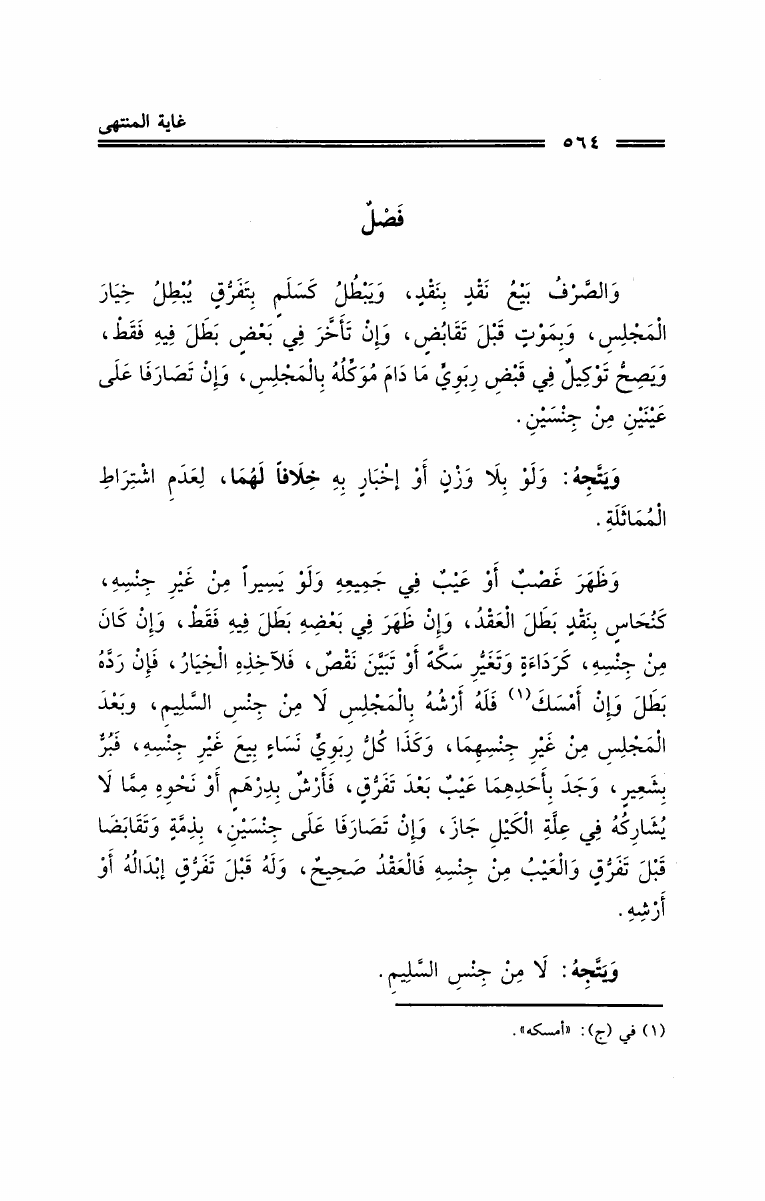 غاية المنتهى
٥٦٤
فَصْلٌ
وَالصَّرْفُ بَيْعُ نَقْدٍ بِنَقْدٍ، وَيَبْطُلُ كَسَلَمٍ بِتَفَرُّقٍ يُبْطِلُ خِيَارَ
الْمَجْلِسِ، وَبِمَوْتٍ قَبْلَ تَقَابُضٍ، وَإِنْ تَأَخَّرَ فِي بَعْضٍ بَطَلَ فِيهِ فَقَطْ،
وَيَصِحُّ تَوْكِيلٌ فِي قَبْضِ رِبَوِيٍّ مَا دَامَ مُوَكِّلُهُ بِالْمَجْلِسِ، وَإِنْ تَصَارَفَا عَلَى
عَيْنَيْنِ مِنْ جِنْسَيْنِ.
وَيَتَّجِهُ: وَلَوْ بِلَا وَزْنٍ أَوْ إخْبَارٍ بِهِ خِلَافاً لَهُمَا، لِعَدَمِ اشْتِرَاطِ
الْمُمَاثَلَةِ.
وَظَهَرَ غَصْبٌ أَوْ عَيْبٌ فِي جَمِيعِهِ وَلَوْ يَسِيراً مِنْ غَيْرِ جِنْسِهِ،
كَنُحَاسٍ بِنَقْدٍ بَطَلَ الْعَقْدُ، وَإِنْ ظَهَرَ فِي بَعْضِهِ بَطَلَ فِيهِ فَقَطْ، وَإِنْ كَانَ
مِنْ جِنْسِهِ، كَرَدَاءَةٍ وَتَغَيُّرِ سَكَّةٍ أَوْ تَبَيَّنَ نَقْصٌ، فَلآخِذِهِ الْخِيَارُ، فَإِنْ رَدَّهُ
بَطَلَ وَإِنْ أَمْسَكَ(١) فَلَهُ أَرْشُهُ بِالْمَجْلِسِ لَا مِنْ جِنْسِ السَّلِيمِ، وبَعْدَ
الْمَجْلِسِ مِنْ غَيْرِ جِنْسِهِمَا، وَكَذَا كُلُّ رِبَوِيٍّ نَسَاءٍ بِيعَ غَيْرِ جِنْسِهِ، فَبُرٌّ
بِشَعِيرٍ، وَجَدَ بِأَحَدِهِمَا عَيْبٌ بَعْدَ تَفَرُّقٍ، فَأَرْشٌ بِدِرْهَمٍ أَوْ نَحْوِهِ مِمَّا لَا
يُشَارِكُهُ فِي عِلَّةِ الْكَيْلِ جَازَ، وَإِنْ تَصَارَفَا عَلَى جِنْسَيْنِ، بِذِمَّةٍ وَتَقَابَضَا
قَبْلَ تَفَرُّقٍ وَالْعَيْبُ مِنْ جِنْسِهِ فَالْعَقْدُ صَحِيحٌ، وَلَهُ قَبْلَ تَفَرُّقٍ إبْدَالُهُ أَوْ
أَرْشِهِ.
وَيَتَّجِهُ: لَا مِنْ جِنْسِ السَّلِيمِ.
(١) في (ج): «أمسكه».